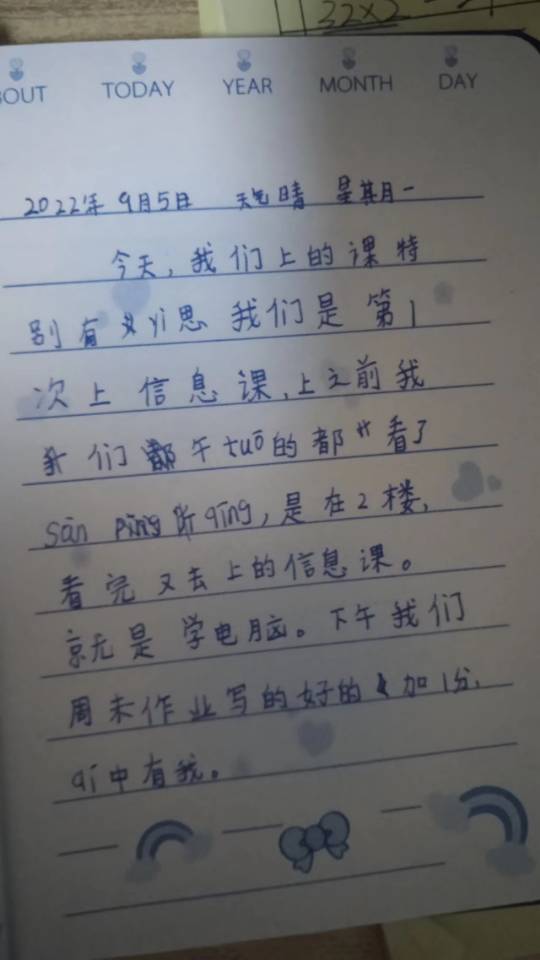 32×2
OUT TODAY YEAR MONTH DAY
2022年 9月5日 天气晴 星其月一
今天，我们上的课特
别有义yì思 我们是第1
次上信息课，上之前我
们都午tuō的都 看了
sān píng qīng，是在2楼，
看完又去上的信息课。
就是学电脑。下午我们
周末作业写的好的 加1分，
qí中有我。